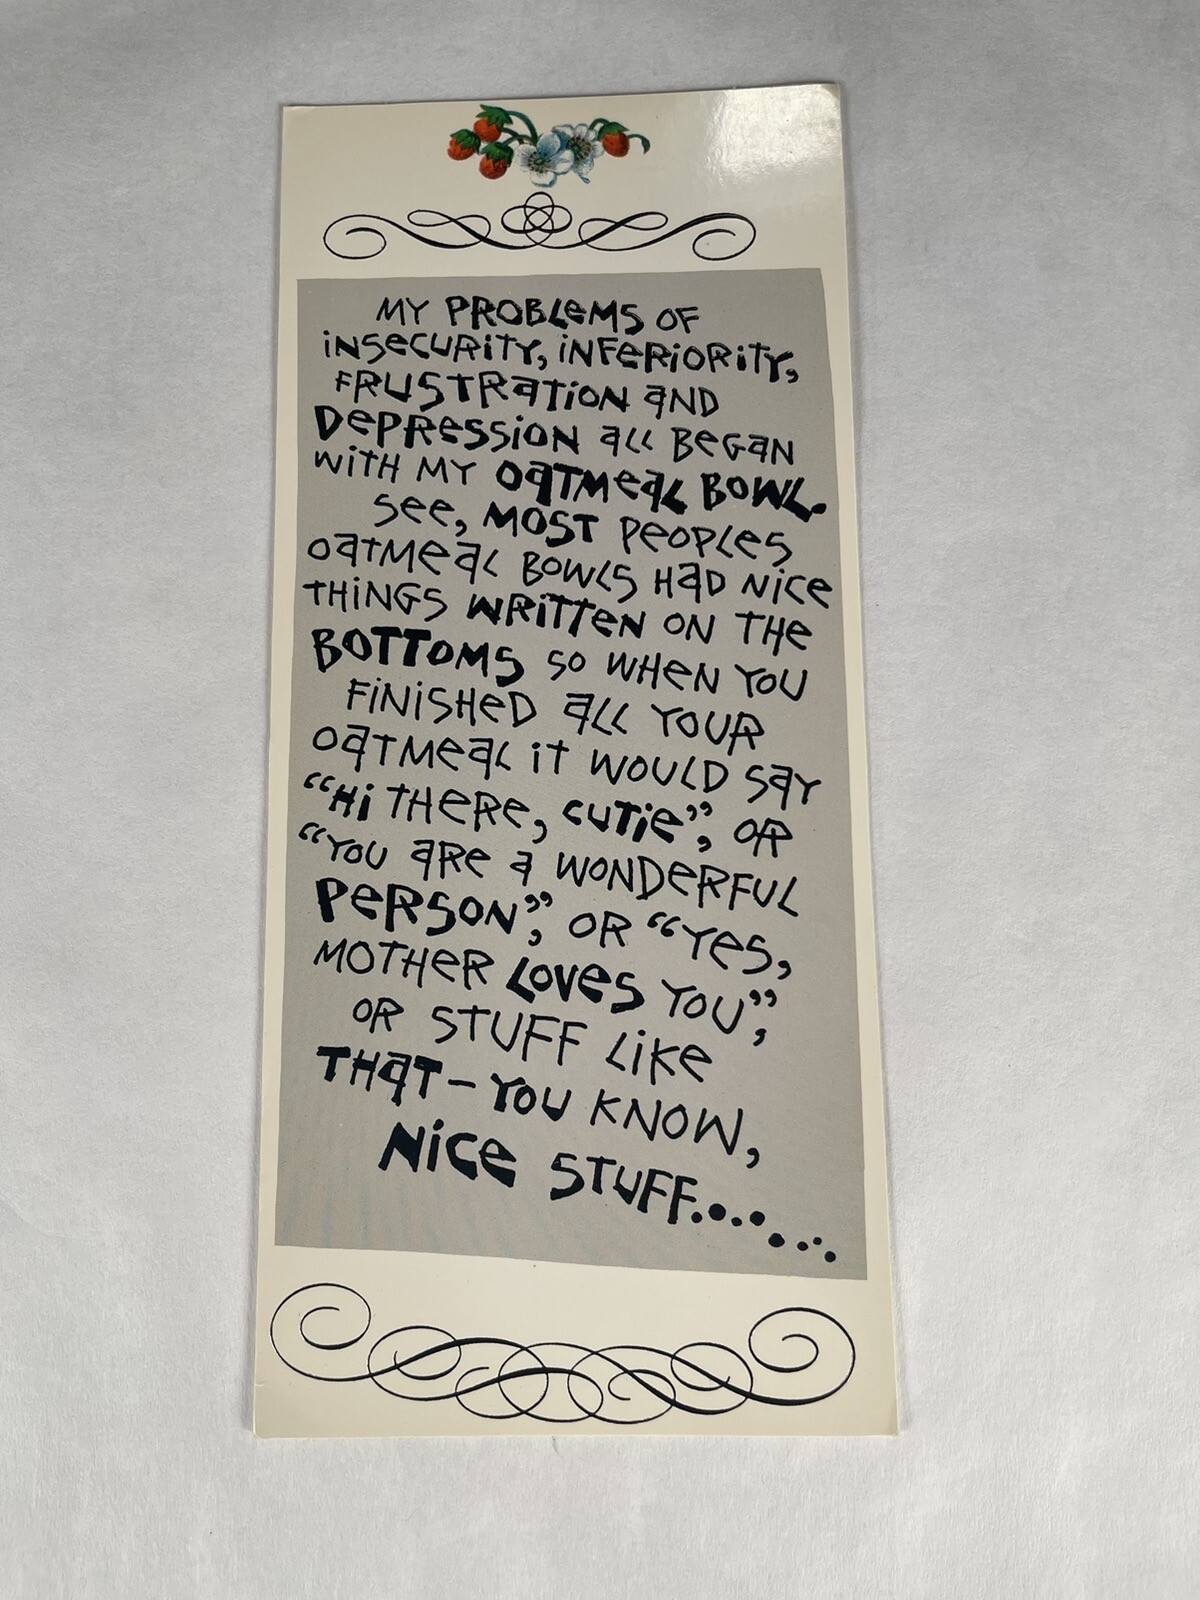 MY PROBLEMS OF
INSECURITY, INFERIORITY,
FRUSTRATION AND
DEPRESSION ALL BEGAN
WITH MY OATMEAL BOWL.
SEE, MOST PEOPLES
OATMEAL BOWLS HAD NICE
THINGS WRITTEN ON THE
BOTTOMS SO WHEN YOU
FINISHED ALL YOUR
OATMEAL IT WOULD SAY
“HI THERE, CUTIE”, OR
“YOU ARE A WONDERFUL
PERSON”, OR “YES,
MOTHER LOVES YOU”,
OR STUFF LIKE
THAT – YOU KNOW,
NICE STUFF........